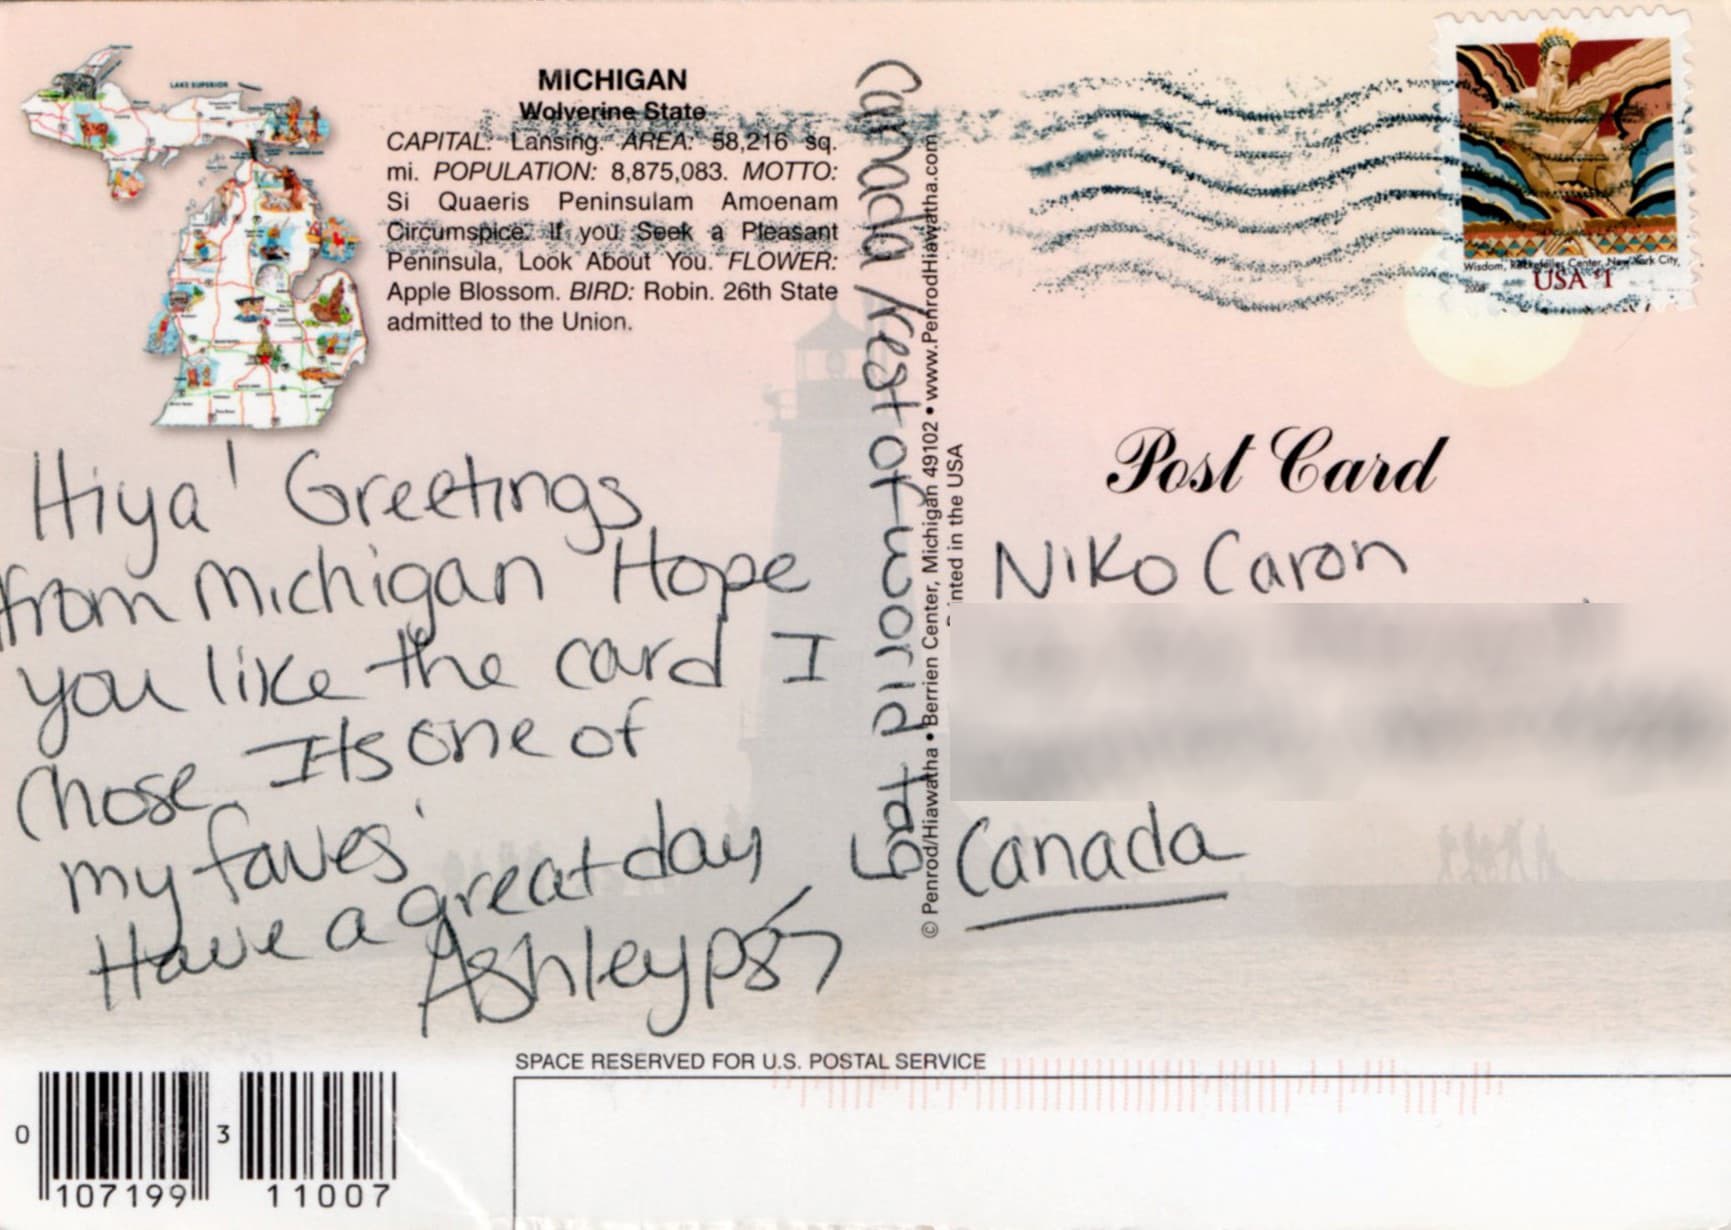 LAKE SUPERIOR
MICHIGAN
Wolverine State
CAPITAL: Lansing. AREA: 58,216 sq.
mi. POPULATION: 8,875,083. MOTTO:
Si Quaeris Peninsulam Amoenam
Circumspice. If you Seek a Pleasant
Peninsula, Look About You. FLOWER:
Apple Blossom. BIRD: Robin. 26th State
admitted to the Union.
Wisdom, Rockefeller Center, New York City
2008 USA $1
Hiya! Greetings
from Michigan Hope
you like the card I
chose. Its one of
my faves!
Have a great day
Ashley ps
eat plront or Canada
© Penrod/Hiawatha • Berrien Center, Michigan 49102 • www.PenrodHiawatha.com
Printed in the USA
Post Card
Niko Caron
Canada
SPACE RESERVED FOR U.S. POSTAL SERVICE
0 107199 3 11007